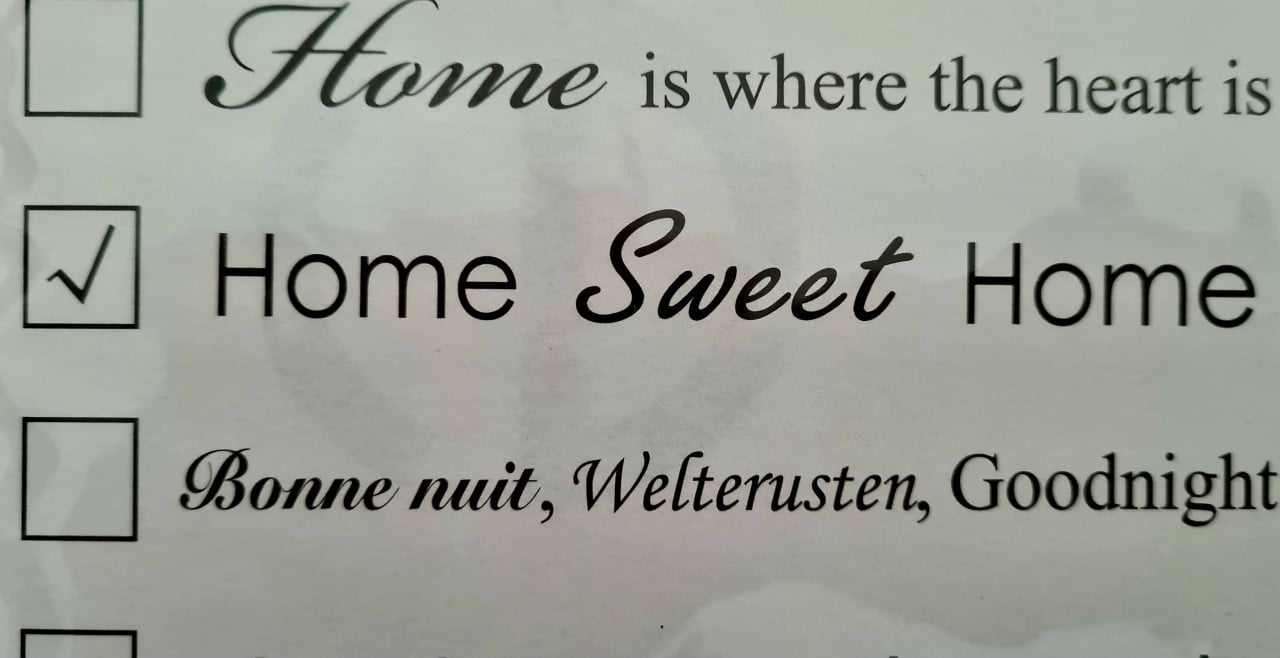 Home is where the heart is
Home Sweet Home
Bonne nuit, Welterusten, Goodnight